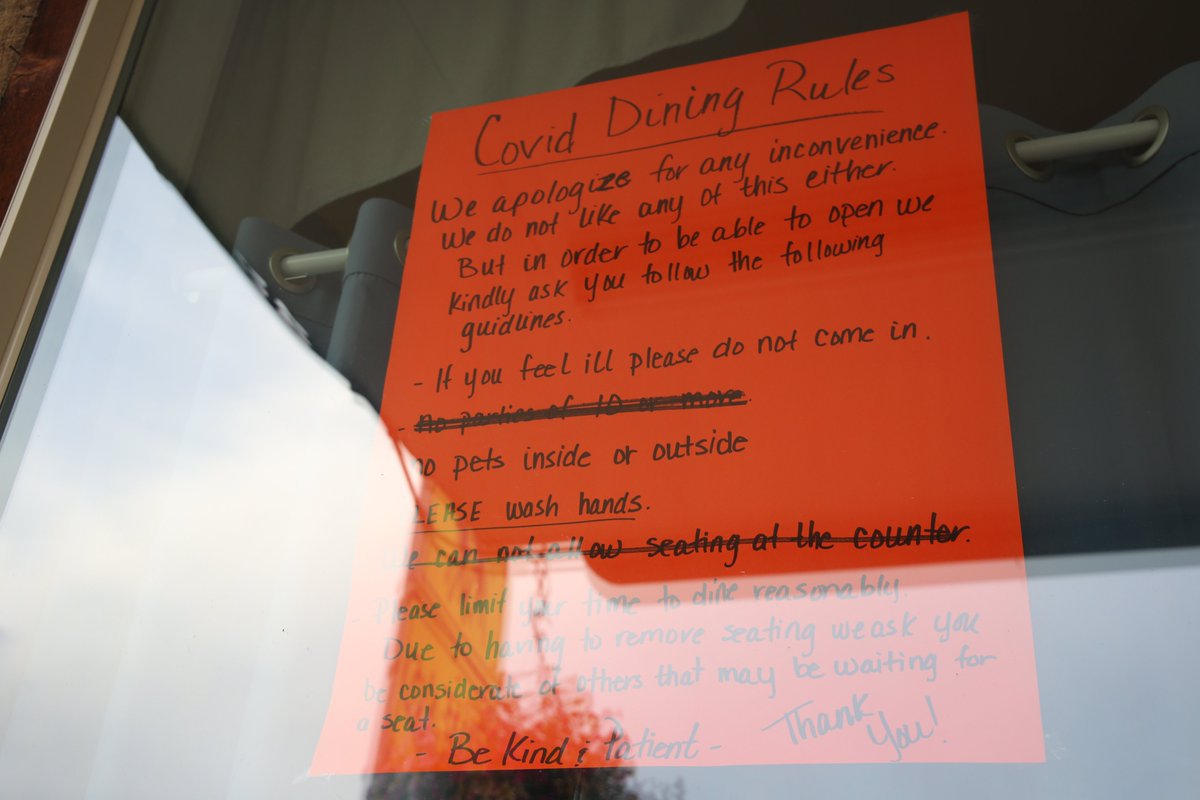 Covid Dining Rules
We apologize for any inconvenience.
We do not like any of this either.
But in order to be able to open we
kindly ask you follow the following
guidlines.
- If you feel ill please do not come in.
- no parties of 10 or more.
no pets inside or outside
PLEASE wash hands.
We can not allow seating at the counter.
- Please limit your time to dine reasonably.
Due to having to remove seating we ask you
be considerate of others that may be waiting for
a seat.
- Be Kind & Patient -
Thank
You!